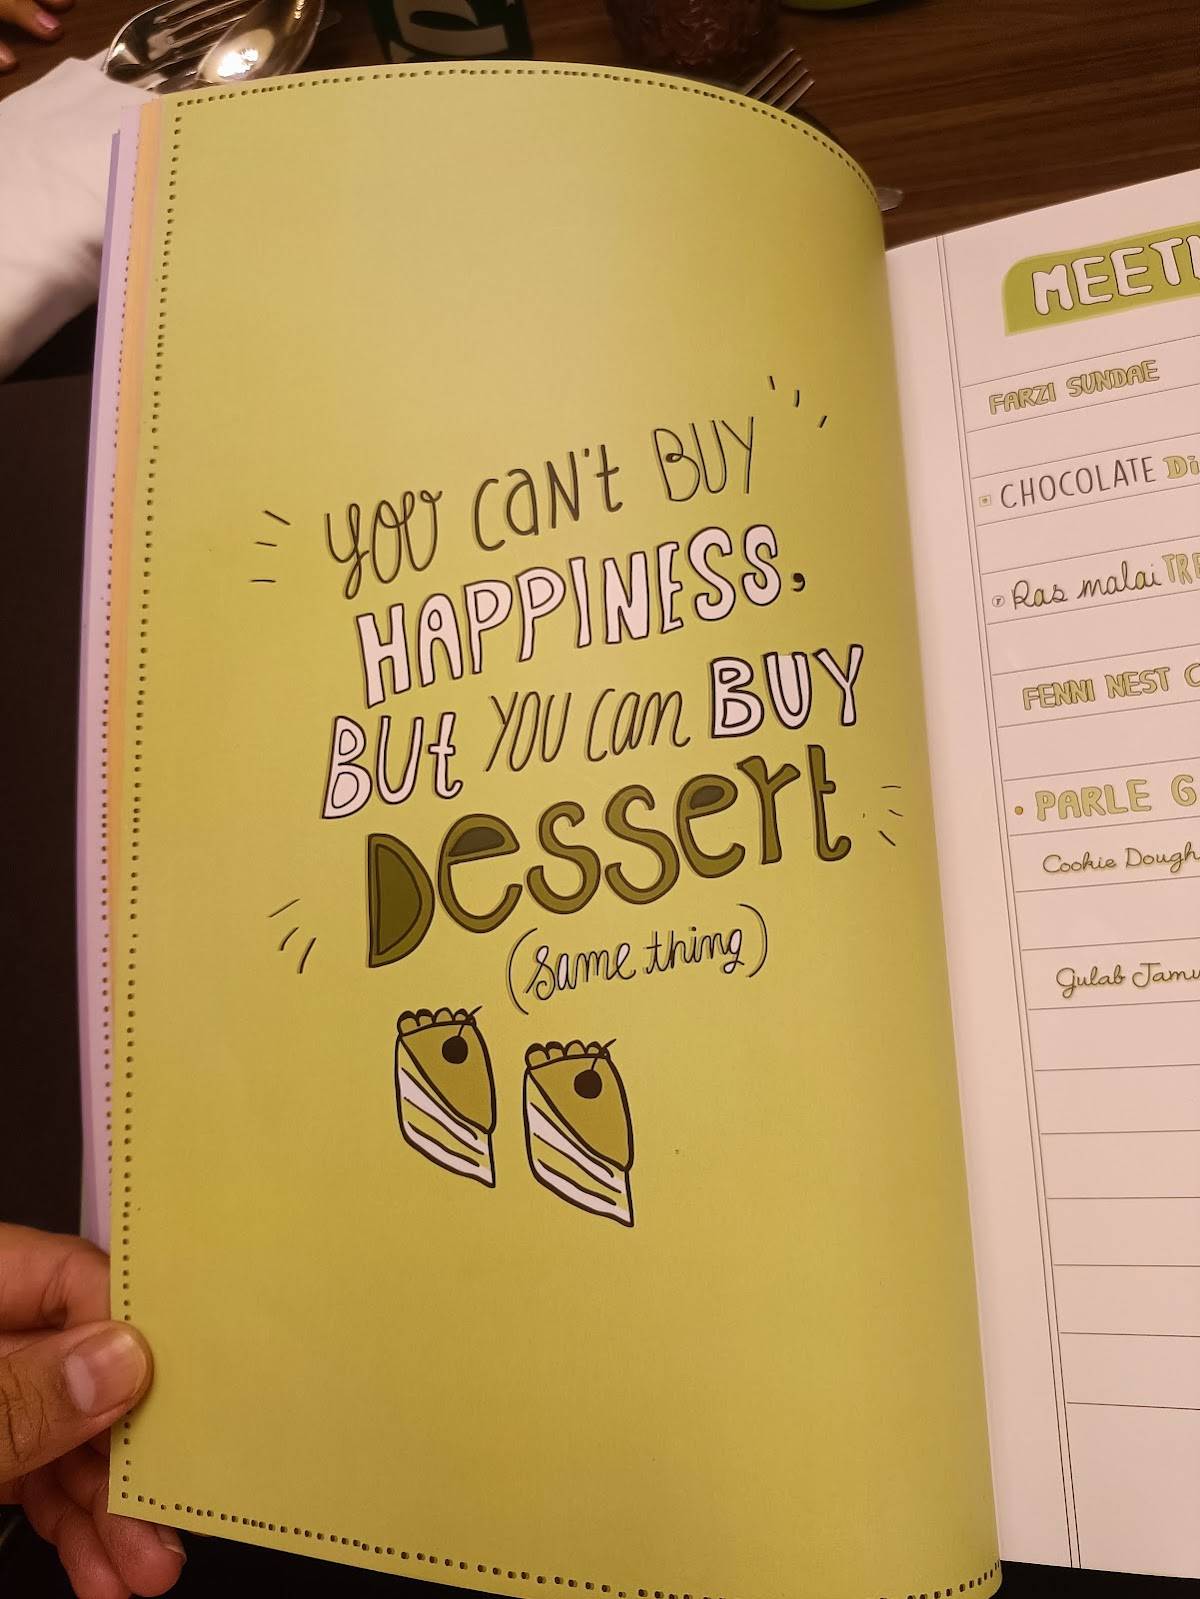 you can't BUY
HAPPINESS,
BUt YOU can BUY
Dessert
(same thing)
FARZI SUNDAE
CHOCOLATE
Ras malai
FENNI NEST
PARLE G
Cookie Dough
Gulab